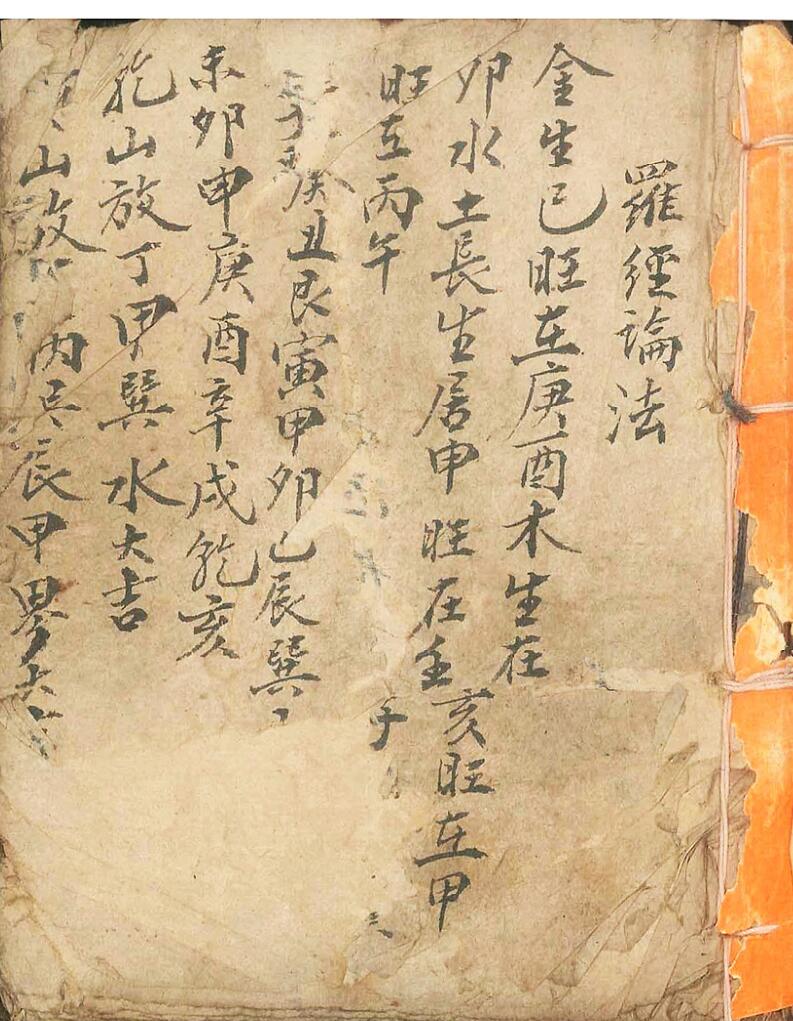 羅經論法
金生巳旺在庚酉木生在
亥旺在甲
卯水土長生居申旺在壬
子
旺在丙午
癸丑艮寅甲卯乙辰巽
未卯申庚酉辛戌乾亥
乾山放丁甲巽水大吉
山放丙 辰甲 大